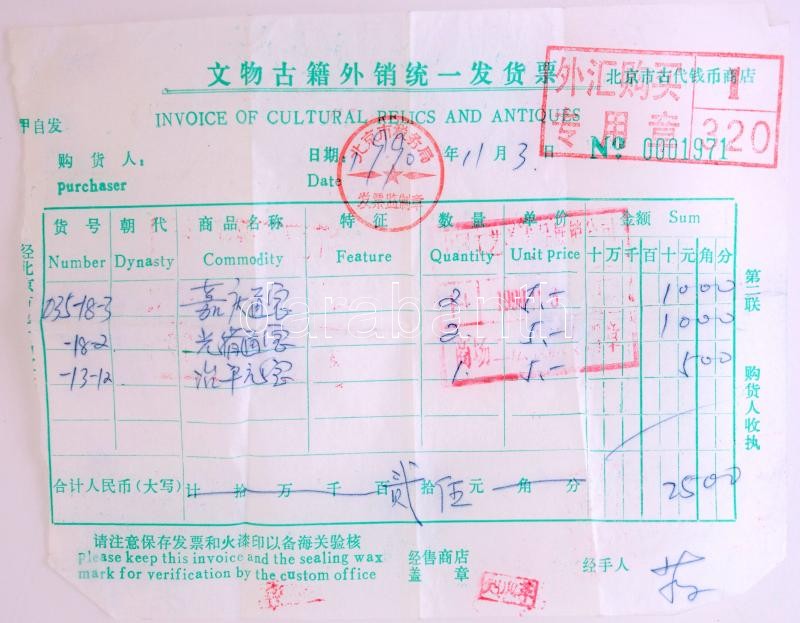 文物古籍外销统一发货票
北京市古代钱币商店
外汇购买
专用章
1
320
INVOICE OF CULTURAL RELICS AND ANTIQUES
甲自发
北京市税务局
发票监制章
购货人：
purchaser
日期： 1990 年 11 月 3 日
Date
No 0001971
货号 朝代 商品名称 特征 数量 单价 金额 Sum
Number Dynasty Commodity Feature Quantity Unit price 十万千百十元角分
035-18-3 嘉庆通宝 2 5.- 1000
-18-2 光绪通宝 2 5.- 1000
-13-12 治平元宝 1 5.- 500
darabanth
合计人民币(大写) 计 拾 万 千 百 贰 拾 伍 元 角 分 2500
第二联
购货人收执
请注意保存发票和火漆印以备海关验核
please keep this invoice and the sealing wax
mark for verification by the custom office
经售商店
盖章
经手人